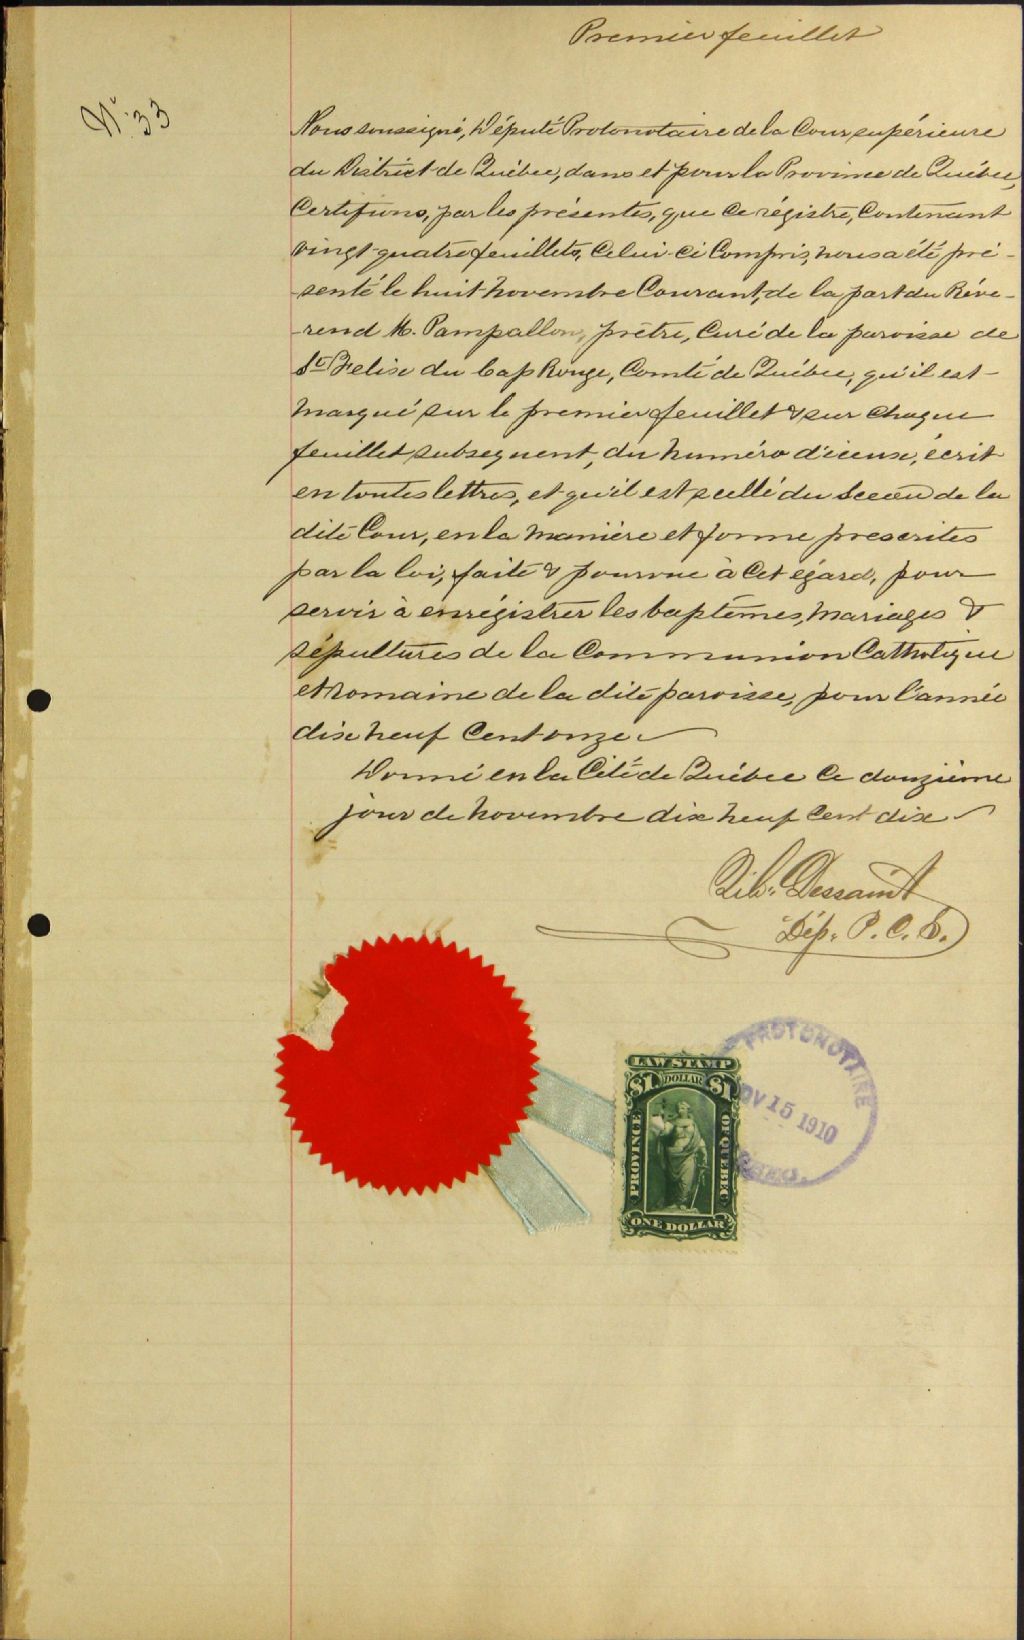 Premier feuillet
No. 33
Nous soussigné, Député Protonotaire de la Cour supérieure
du District de Québec, dans et pour la Province de Québec,
Certifions, par les présentes, que ce régistre, Contenant
vingt-quatre feuillets, Celui-ci Compris, nous a été pré-
-senté le huit novembre Courant, de la part du Réve-
-rend M. Pampallon, prêtre, Curé de la paroisse de
St Felix du Cap Rouge, Comté de Québec, qu'il est
marqué sur le premier feuillet & sur chaque
feuillet subsequent, du numéro d'iceux, écrit
en toutes lettres, et qu'il est scellé du Sceau de la
dite Cour, en la manière et forme prescrites
par la loi, faite & pourvue à cet égard, pour
servir à enrégistrer les baptêmes, mariages &
sépultures de la Communion Catholique
et romaine de la dite paroisse, pour l'année
dix neuf Cent onze
Donné en la Cité de Québec ce douzième
jour de novembre dix neuf Cent dix
Dessaint
Dép. P. C. S.
PROTONOTAIRE
OV 15 1910
LAW STAMP
$1 DOLLAR $1
PROVINCE OF QUEBEC
ONE DOLLAR